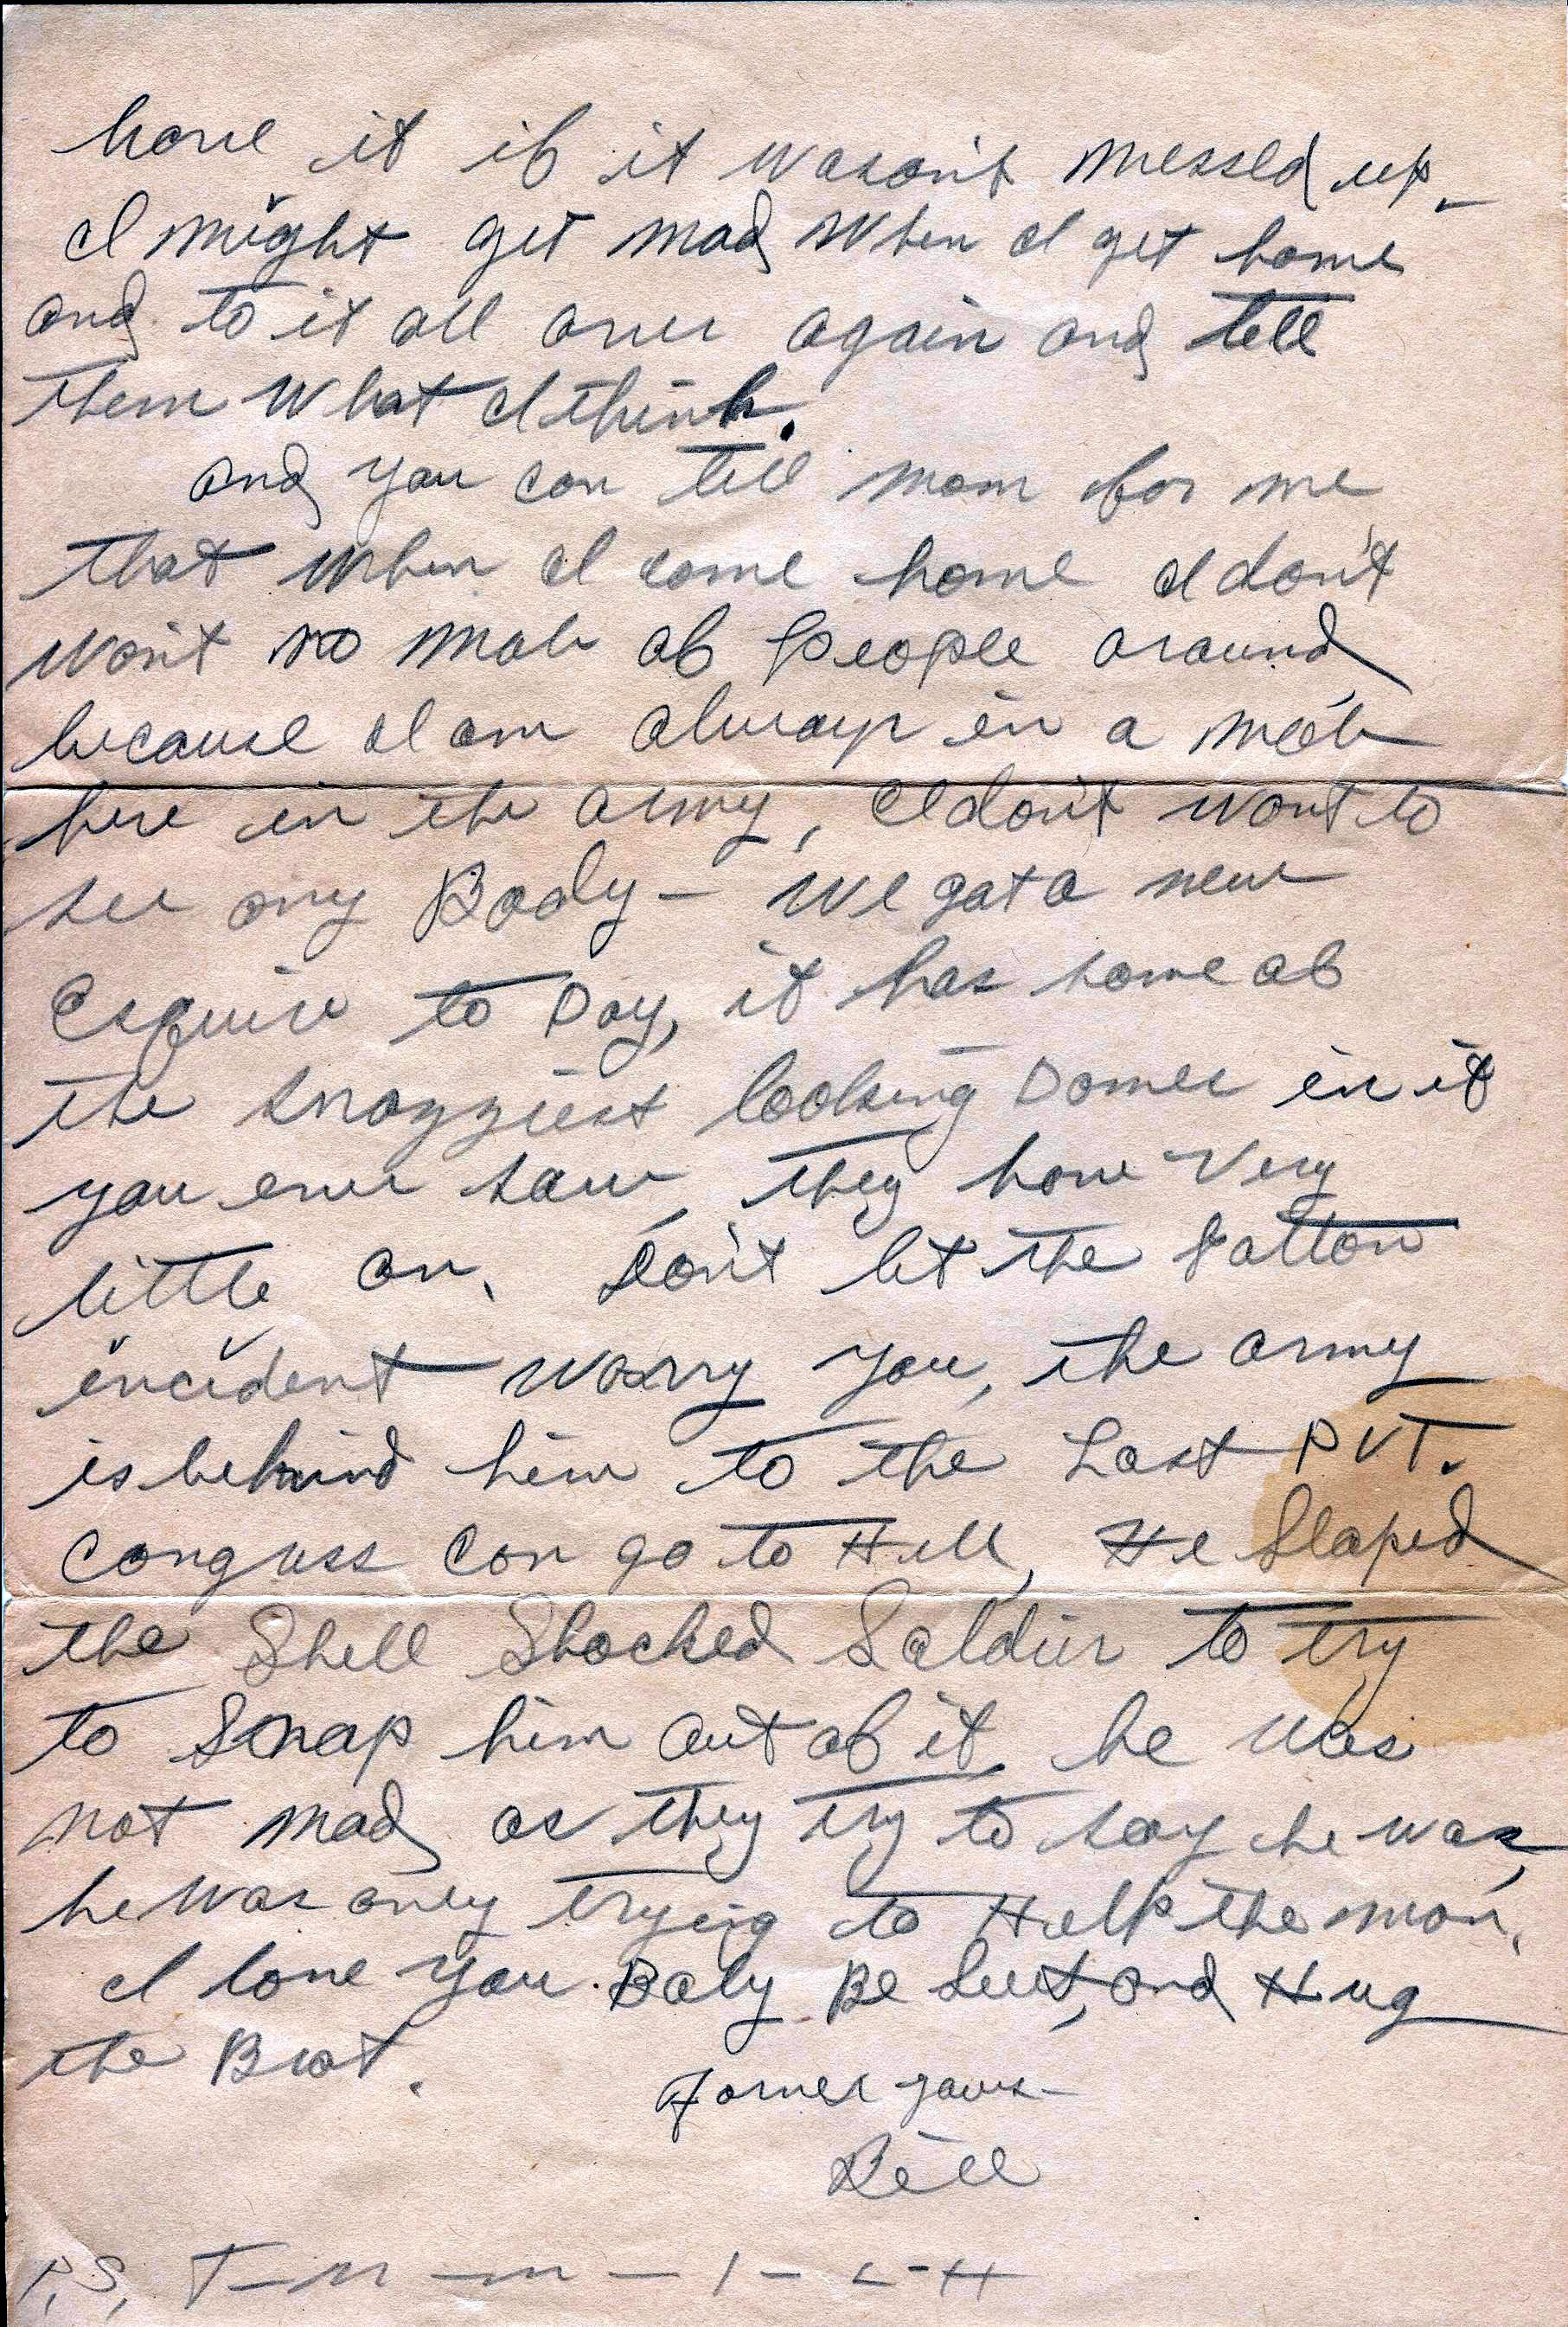 have it if it wasn't messed up.
I might get mad when I get home
and to it all over again and tell
them what I think.
and you can tell mom for me
that when I come home I don't
won't no mob of people around
because I am always in a mob
here in the army, I don't want to
see any Body - we got a new
Esquire to Day, it has some of
the snazziest looking Dames in it
you ever saw, they have Very
little on. Don't let the Patton
incident worry you, the army
is behind him to the Last PVT.
Congress can go to Hell, He Slaped
the Shell Shocked Soldier to try
to Snap him out of it, he was
not mad as they try to say he was,
he was only trying to Help the man.
I love you Baby Be Sweet, and Hug
the Brat.
yours
Bill
P.S. T - M - m - I - L - H